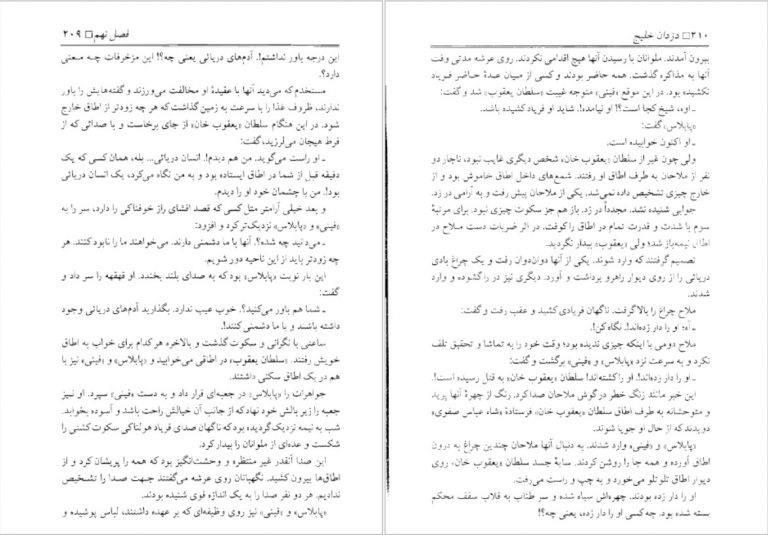 فصل نهم □ ۲۰۹
این درجه باور نداشتم!. آدم‌های دریائی یعنی چه؟! این مزخرفات چه معنی
دارد؟.
مستخدم که می‌دید آنها با عقیدهٔ او مخالفت می‌ورزند و گفته‌هایش را باور
ندارند، ظروف غذا را با سرعت به زمین گذاشت که هر چه زودتر از اطاق خارج
شود. در این هنگام سلطان «یعقوب خان» از جای برخاست و با صدائی که از
فرط هیجان می‌لرزید، گفت:
ـ او راست می‌گوید. من هم دیدم!. انسان دریائی... بله، همان کسی که یک
دقیقه قبل از شما در اطاق ایستاده بود و به من نگاه می‌کرد، یک انسان دریائی
بود!. من با چشمان خود او را دیدم.
و بعد خیلی آرامتر مثل کسی که قصد افشای راز خوفناکی را دارد، سر را به
«فینی» و «پابلاس» نزدیک‌تر کرد و افزود:
ـ می‌دانید چه شده؟. آنها با ما دشمنی دارند. می‌خواهند ما را نابود کنند. هر
چه زودتر باید از این ناحیه دور شویم.
این بار نوبت «پابلاس» بود که به صدای بلند بخندد. او قهقهه را سر داد و
گفت:
ـ شما هم باور می‌کنید؟. خوب عیب ندارد. بگذارید آدم‌های دریائی وجود
داشته باشند و با ما دشمنی کنند!.
ساعتی با نگرانی و سکوت گذشت و بالاخره هر کدام برای خواب به اطاق
خویش رفتند. «سلطان یعقوب» در اطاقی می‌خوابید و «پابلاس» و «فینی» نیز با
هم در یک اطاق سکنی داشتند.
جواهرات را «پابلاس» در جعبه‌ای قرار داد و به دست «فینی» سپرد. او نیز
جعبه را زیر بالش خود نهاد که از جانب آن خیالش راحت باشد و آسوده بخوابد.
شب به نیمه نزدیک گردیده بود که ناگهان صدی فریاد هولناکی سکوت کشتی را
شکست و عده‌ای از ملوانان را بیدار کرد.
این صدا آنقدر غیر منتظره و وحشت‌انگیز بود که همه را پریشان کرد و از
اطاق‌ها بیرون کشید. نگهبانان روی عرشه می‌گفتند جهت صدا را تشخیص
ندادیم. هر دو نفر صدا را به یک اندازه قوی شنیده بودند.
«پابلاس» و «فینی» نیز روی وظیفه‌ای که بر عهده داشتند، لباس پوشیده و
۲۱۰ □ دزدان خلیج
بیرون آمدند. ملوانان با رسیدن آنها هیچ اقدامی نکردند. روی عرشه مدتی وقت
آنها به مذاکره گذشت. همه حاضر بودند و کسی از میان عدهٔ حاضر فریاد
نکشیده بود. در این موقع «فینی» متوجه غیبت «سلطان یعقوب» شد و گفت:
ـ اوه، شیخ کجا است؟! او نیامده!. شاید او فریاد کشیده باشد.
«پابلاس» گفت:
ـ او اکنون خوابیده است.
ولی چون غیر از سلطان «یعقوب خان» شخص دیگری غایب نبود، ناچار دو
نفر از ملاحان به طرف اطاق او رفتند. شمع‌های داخل اطاق خاموش بود و از
خارج چیزی تشخیص داده نمی‌شد. یکی از ملاحان پیش رفت و به آرامی در زد.
جوابی شنیده نشد. مجدداً در زد. باز هم جز سکوت چیزی نبود. برای مرتبهٔ
سوم با شدت و قدرت تمام در اطاق را کوفت. در اثر ضربات دست ملاح در
اطاق نیمه‌باز شد؛ ولی «یعقوب» بیدار نگردید.
تصمیم گرفتند که وارد شوند. یکی از آنها دوان‌دوان رفت و یک چراغ بادی
دریائی را از روی دیوار راهرو برداشت و آورد. دیگری نیز در را گشوده و وارد
شدند.
ملاح چراغ را بالا گرفت. ناگهان فریادی کشید و عقب رفت و گفت:
ـ آه! او را دار زده‌اند!. نگاه کن!.
ملاح دومی با اینکه چیزی ندیده بود؛ وقت خود را به تماشا و تحقیق تلف
نکرد و به سرعت نزد «پابلاس» و «فینی» برگشت و گفت:
ـ او را دار زده‌اند!. او را کشته‌اند! سلطان «یعقوب خان» به قتل رسیده است!.
این خبر مانند زنگ خطر در گوش ملاحان صدا کرد. رنگ از چهرهٔ آنها پرید
و متوحشانه به طرف اطاق سلطان «یعقوب خان» فرستادهٔ «شاه عباس صفوی»
دویدند که از حال او جویا شوند.
«پابلاس» و «فینی» وارد شدند. به دنبال آنها ملاحان چندین چراغ به درون
اطاق آورده و همه جا را روشن کردند. سایهٔ جسد سلطان «یعقوب خان» روی
دیوار اطاق تلو تلو می‌خورد و به چپ و راست می‌رفت.
او را دار زده بودند. چهره‌اش سیاه شده و سر طناب به قلاب سقف محکم
بسته شده بود. چه کسی او را دار زده، یعنی چه؟!